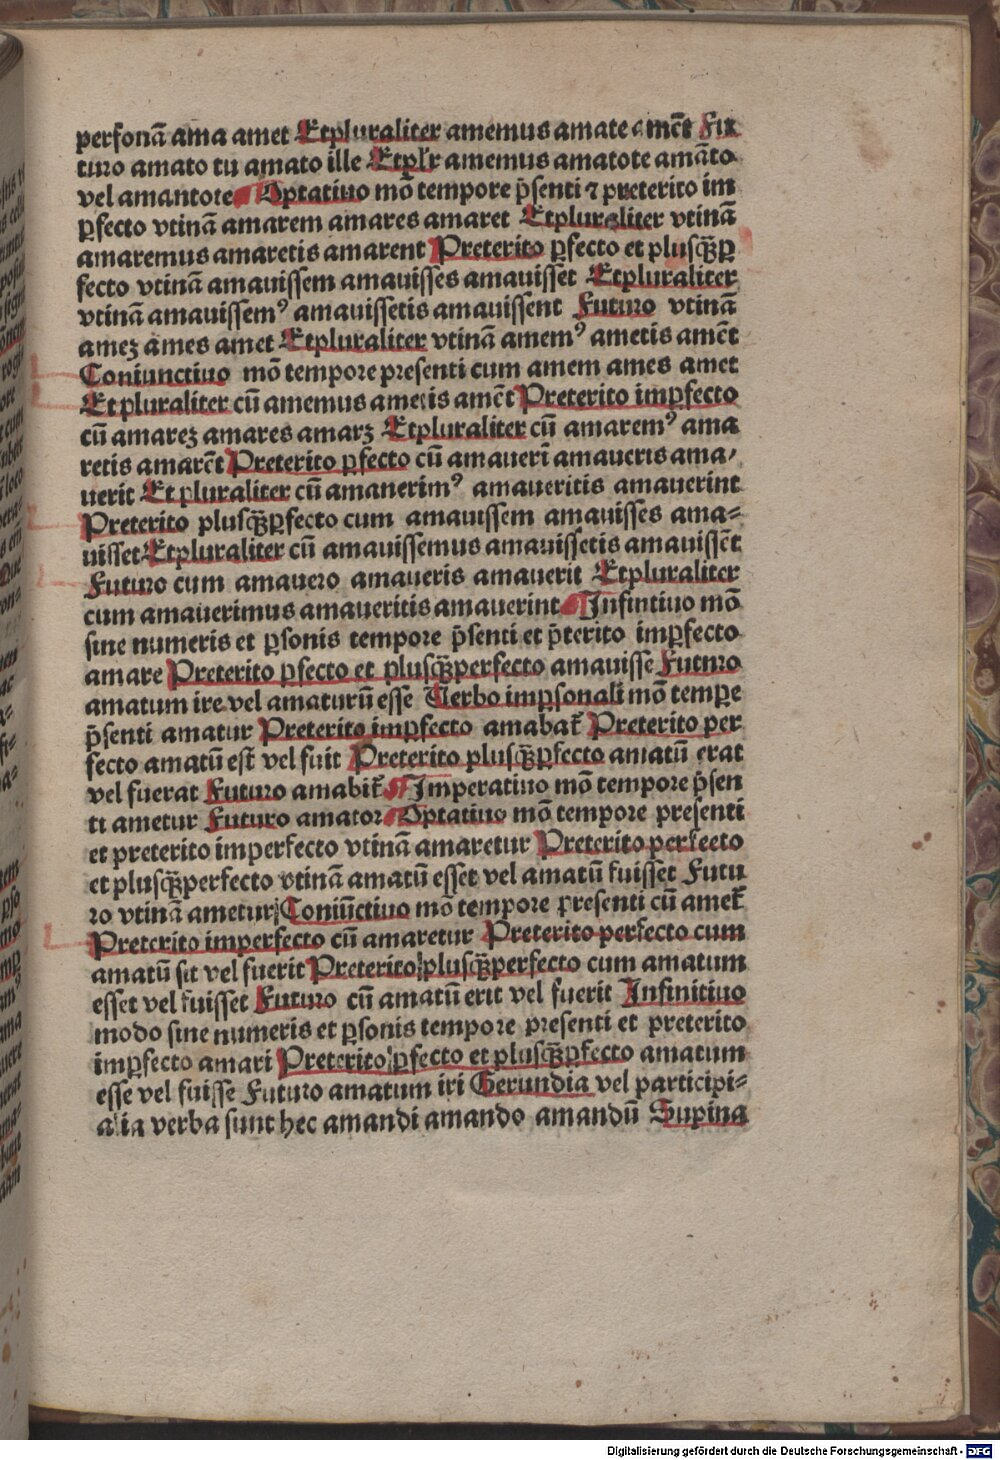 personā ama amet Etpluraliter amemus amate amēt Fu
turo amato tu amato ille Etplr̄ amemus amatote amāto
vel amantote Optatiuo mō tempore p̄senti ⁊ preterito im
ꝑfecto vtinā amarem amares amaret Etpluraliter vtinā
amaremus amaretis amarent Preterito ꝑfecto et plusqȝ̄ꝑ
fecto vtinā amauissem amauisses amauisset Etpluraliter
vtinā amauissemꝰ amauissetis amauissent Futuro vtinā
ameȝ ames amet Etpluraliter vtinā amemꝰ ametis amēt
Coniunctiuo mō tempore presenti cum amem ames amet
Et pluraliter cū amemus ametis amēt Preterito imꝑfecto
cū amareȝ amares amarȝ Etpluraliter cū amaremꝰ ama
retis amarēt Preterito ꝑfecto cū amauerī amaueris ama/
uerit Et pluraliter cū amanerimꝰ amaueritis amauerint
Preterito plusqȝ̄ꝑfecto cum amauissem amauisses ama-
uisset Etpluraliter cū amauissemus amauissetis amauissēt
Futuro cum amauero amaueris amauerit Etpluraliter
cum amauerimus amaueritis amauerint Infintiuo mō
sine numeris et ꝑsonis tempore p̄senti et p̄terito imꝑfecto
amare Preterito ꝑfecto et plusqȝ̄perfecto amauisse Futuro
amatum ire vel amaturū esse Verbo imꝑsonali mō temꝑe
p̄senti amatur Preterito imꝑfecto amabat̄ Preterito per
fecto amatū est vel fuit Preterito plusqȝ̄ꝑfecto amatū erat
vel fuerat Futuro amabit̄ Imperatiuo mō tempore p̄sen
ti ametur Futuro amator Optatiuo mō tempore presenti
et preterito imperfecto vtinā amaretur Preterito perfecto
et plusqȝ̄perfecto vtinā amatū esset vel amatū fuisset Futu
ro vtinā ametur Coniūctiuo mō tempore presenti cū amet̄
Preterito imperfecto cū amaretur Preterito perfecto cum
amatū sit vel fuerit Preterito plusqȝ̄perfecto cum amatum
esset vel fuisset Futuro cū amatū erit vel fuerit Infinitiuo
modo sine numeris et ꝑsonis tempore presenti et preterito
imꝑfecto amari Preterito ꝑfecto et plusqȝ̄ꝑfecto amatum
esse vel fuisse Futuro amatum iri Gerundia vel participi-
alia verba sunt hec amandi amando amandū Supina
Digitalisierung gefördert durch die Deutsche Forschungsgemeinschaft - DFG